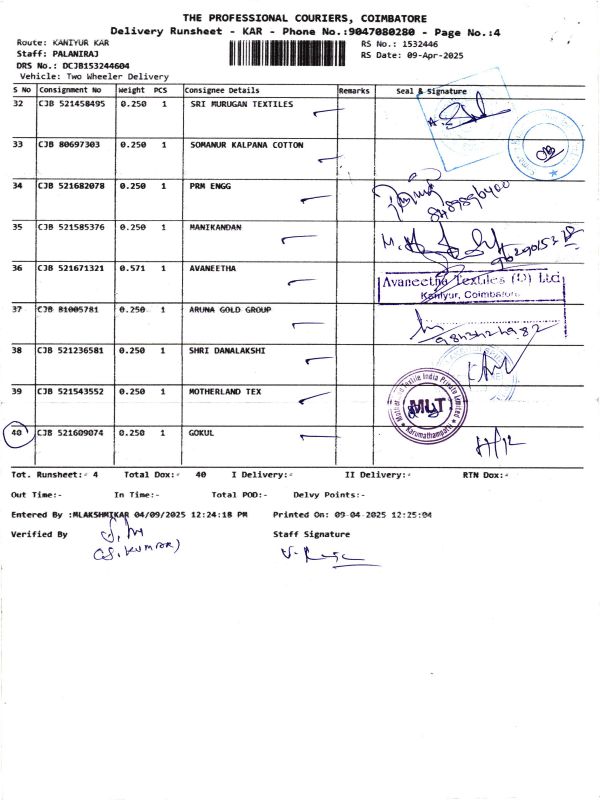 THE PROFESSIONAL COURIERS, COIMBATORE
Delivery Runsheet - KAR - Phone No.:9047080280 - Page No.:4
Route: KANIYUR KAR
RS No.: 1532446
Staff: PALANIRAJ
RS Date: 09-Apr-2025
DRS No.: DCJB153244604
Vehicle: Two Wheeler Delivery
S No Consignment No Weight PCS Consignee Details Remarks Seal & Signature
32 CJB 521458495 0.250 1 SRI MURUGAN TEXTILES
33 CJB 80697303 0.250 1 SOMANUR KALPANA COTTON
34 CJB 521682078 0.250 1 PRM ENGG
8489896400
35 CJB 521585376 0.250 1 MANIKANDAN
36 CJB 521671321 0.571 1 AVANEETHA
Avaneetha Textiles (P) Ltd
Kaniyur, Coimbatore
37 CJB 81005781 0.250 1 ARUNA GOLD GROUP
9843424982
38 CJB 521236581 0.250 1 SHRI DANALAKSHMI
39 CJB 521543552 0.250 1 MOTHERLAND TEX
Textile India Private Limited
MLT
Karumathampatti
40 CJB 521609074 0.250 1 GOKUL
Tot. Runsheet:- 4 Total Dox:- 40 I Delivery:- II Delivery:- RTN Dox:-
Out Time:- In Time:- Total POD:- Delvy Points:-
Entered By :MLAKSHMIKAR 04/09/2025 12:24:18 PM Printed On: 09-04-2025 12:25:04
Verified By Staff Signature
(S. KUMAR)